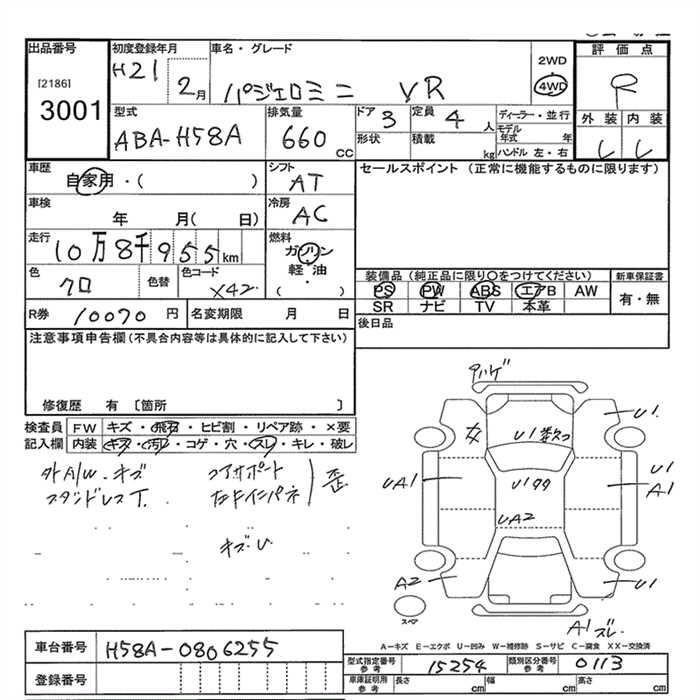 出品番号 初度登録年月 車名・グレード
[2186] H21 2月 パジェロミニ VR 2WD 4WD 評価点
3001 R
型式 排気量 ドア 定員 ディーラー・並行 外装 内装
ABA-H58A 660 CC 3 4人 モデル年式 年
形状 積載 kg ハンドル 左・右
車歴 シフト セールスポイント (正常に機能するものに限ります)
自家用・( ) AT
車検 冷房
年 月( 日) AC
走行 燃料
10万8千955km ガソリン
色 色替 色コード 軽・油
クロ X42 ( )
装備品 (純正品に限り〇をつけてください) 新車保証書
PS PW ABS エアB AW 有・無
SR ナビ TV 本革
R券 10070 円 名変期限 月 日 後日品
注意事項申告欄 (不具合内容等は具体的に記入して下さい)
修復歴 有 〔箇所 〕
検査員 FW キズ・飛石・ヒビ割・リペア跡・×要
記入欄 内装 キズ・汚レ・コゲ・穴・スレ・キレ・破レ
外A/W.キズ コアサポート
スタンドレスT. 右Fインパネ 歪
キズ・U
U1
U1
UA1 U1 A1
UA2
A2 U1
スペア
A1 スレ
A-キズ E-エクボ U-凹み W-補修跡 S-サビ C-腐食 XX-交換済
車台番号 H58A-0806255
登録番号
型式指定番号 参考 15254 類別区分番号 参考 0113
車庫証明用 参考 長さ cm 幅 cm 高さ cm